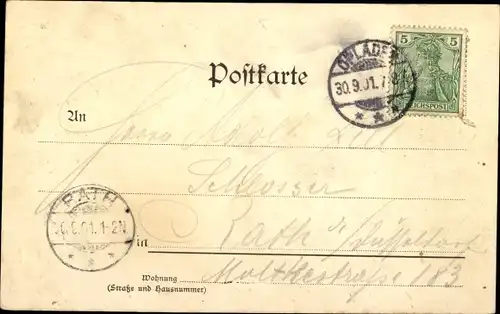 5 5
REICHSPOST
OPLADEN
30.9.01.7-8
Postkarte
An
Herrn Adolf
Schlosser
RATH
30.9.01.1-2N
in Rath b/ Düsseldorf
Wohnung Moltkestraße 183
(Straße und Hausnummer)